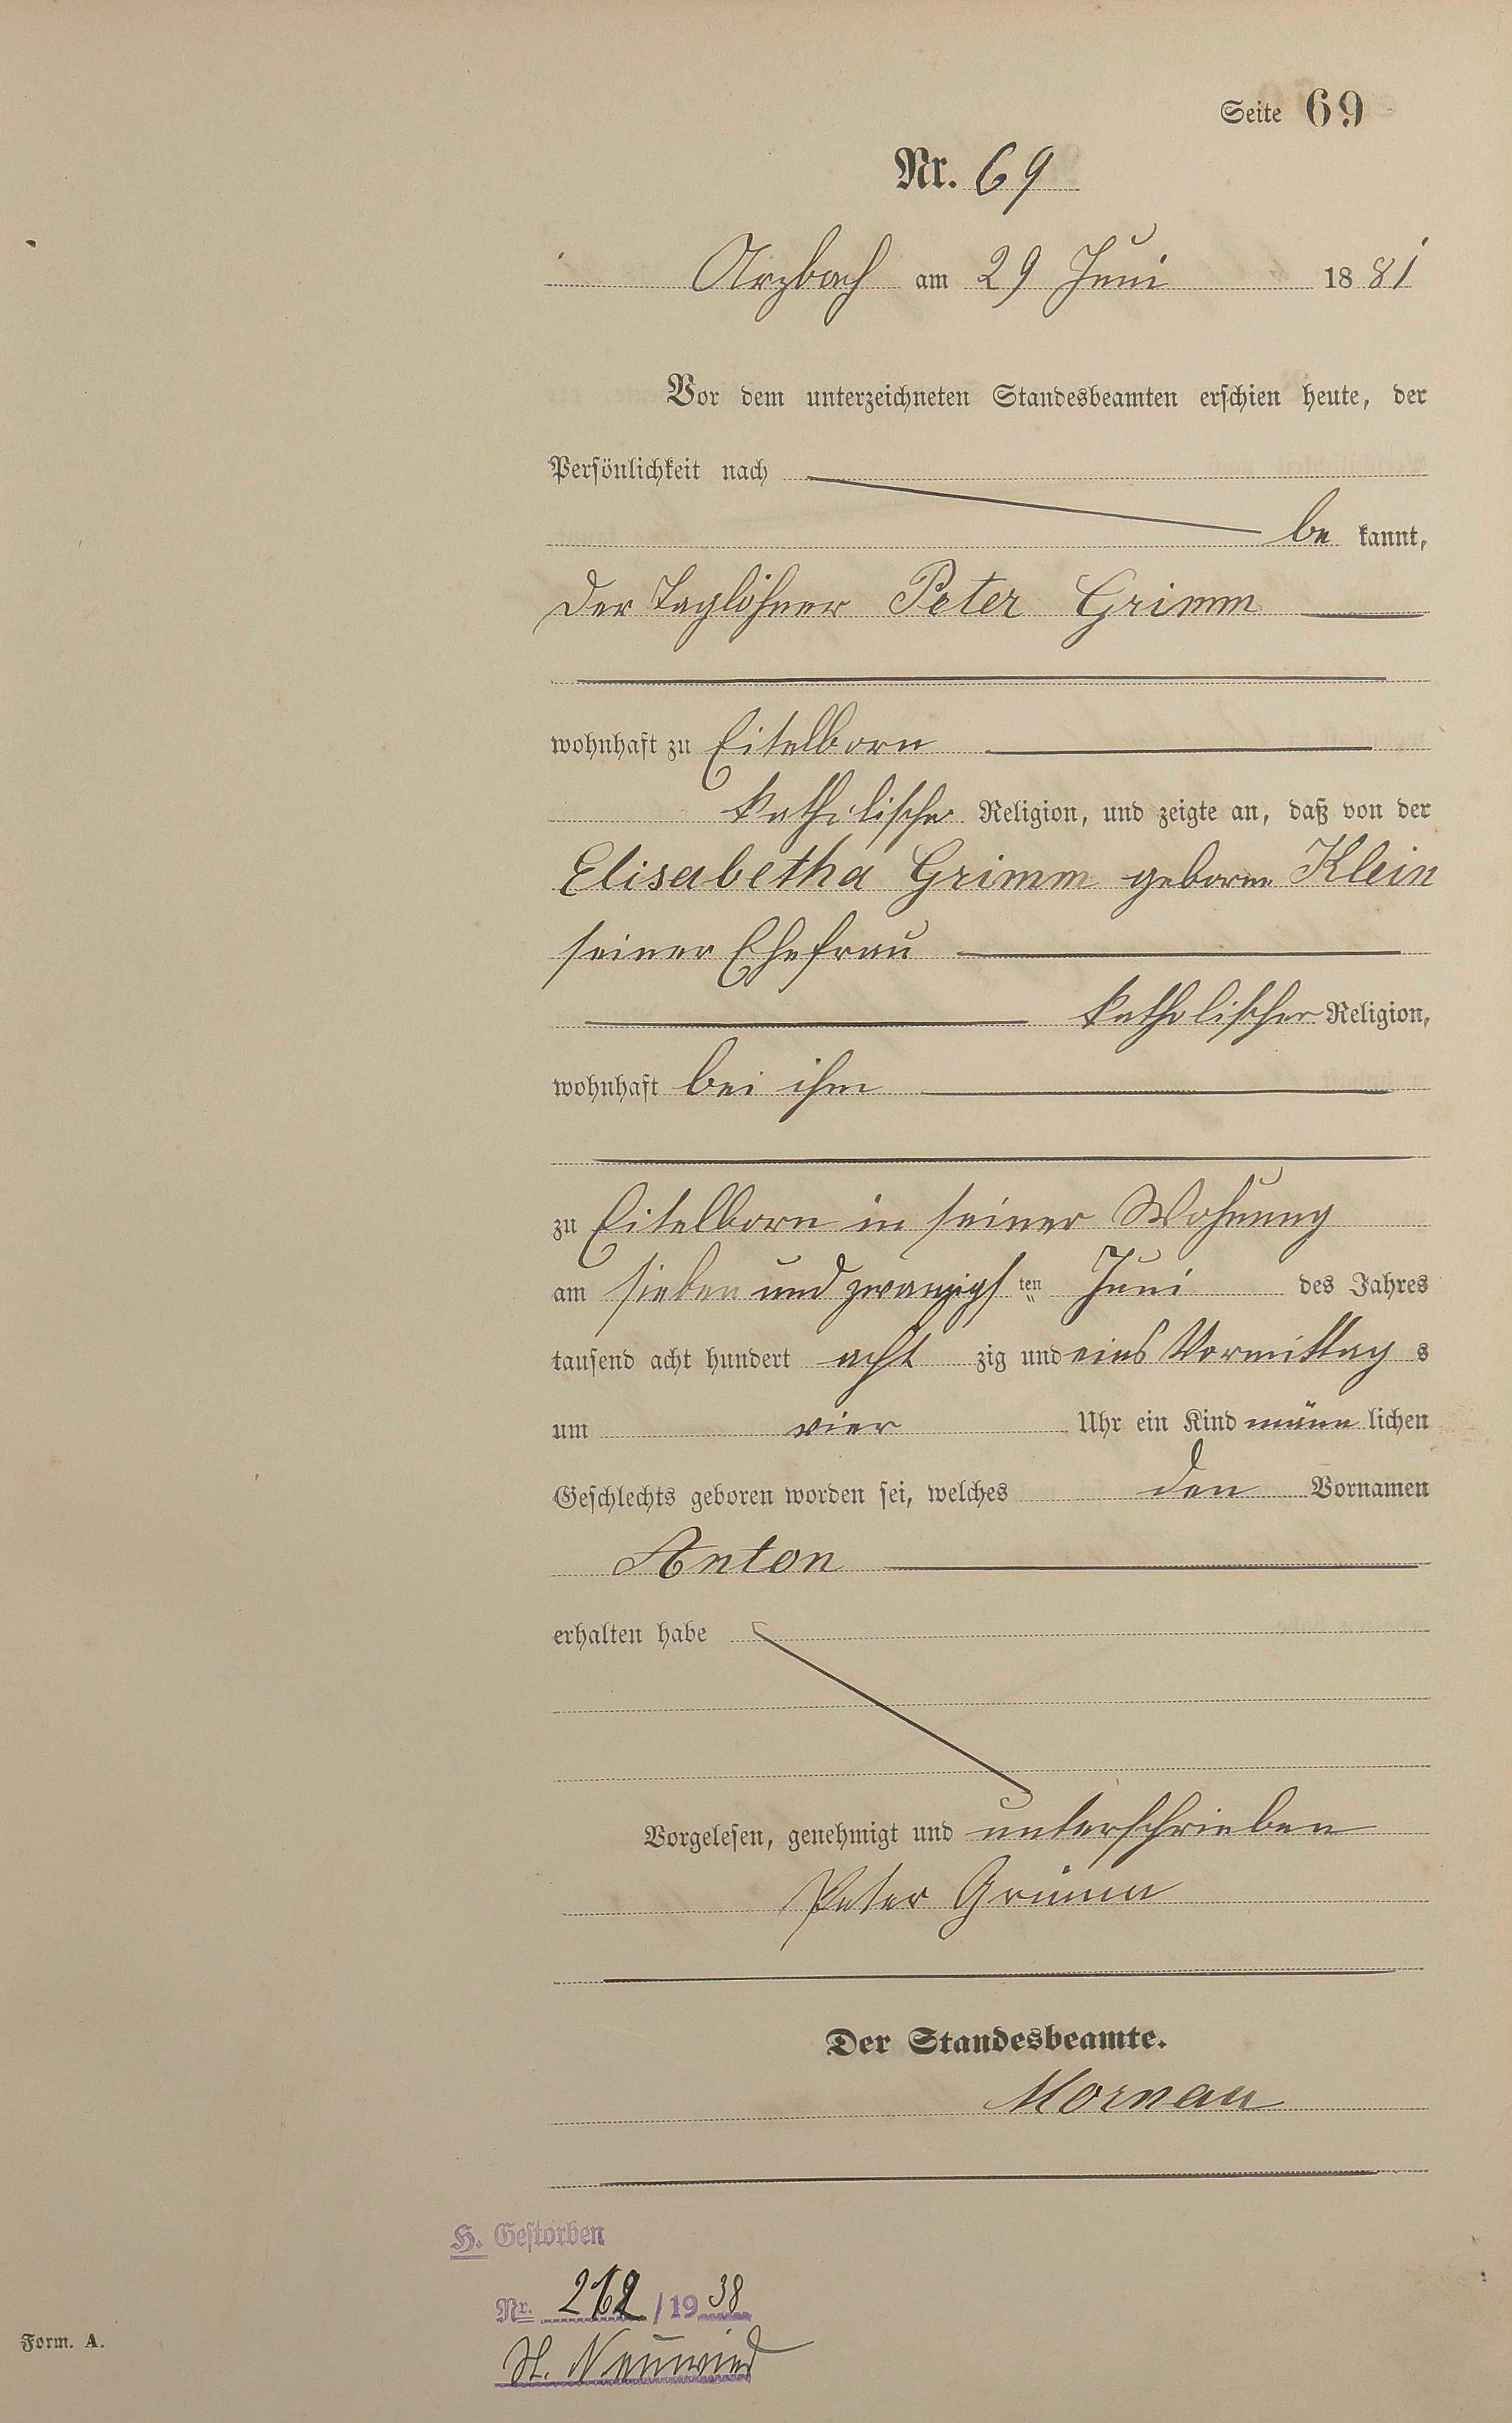 Seite 69
Nr. 69
Arzbach am 29 Juni 1881
Vor dem unterzeichneten Standesbeamten erschien heute, der
Persönlichkeit nach
be kannt,
der Taglöhner Peter Grimm
wohnhaft zu Eitelborn
katholischer Religion, und zeigte an, daß von der
Elisabetha Grimm geborne Klein
seiner Ehefrau
katholischer Religion,
wohnhaft bei ihm
zu Eitelborn in seiner Wohnung
am sieben und zwanzigs ten Juni des Jahres
tausend acht hundert acht zig und eins Vormittag s
um vier Uhr ein Kind männ lichen
Geschlechts geboren worden sei, welches den Vornamen
Anton
erhalten habe
Vorgelesen, genehmigt und unterschrieben
Peter Grimm
Der Standesbeamte.
H. Gestorben
Nr. /1938
St. Neuwied
Form. A.